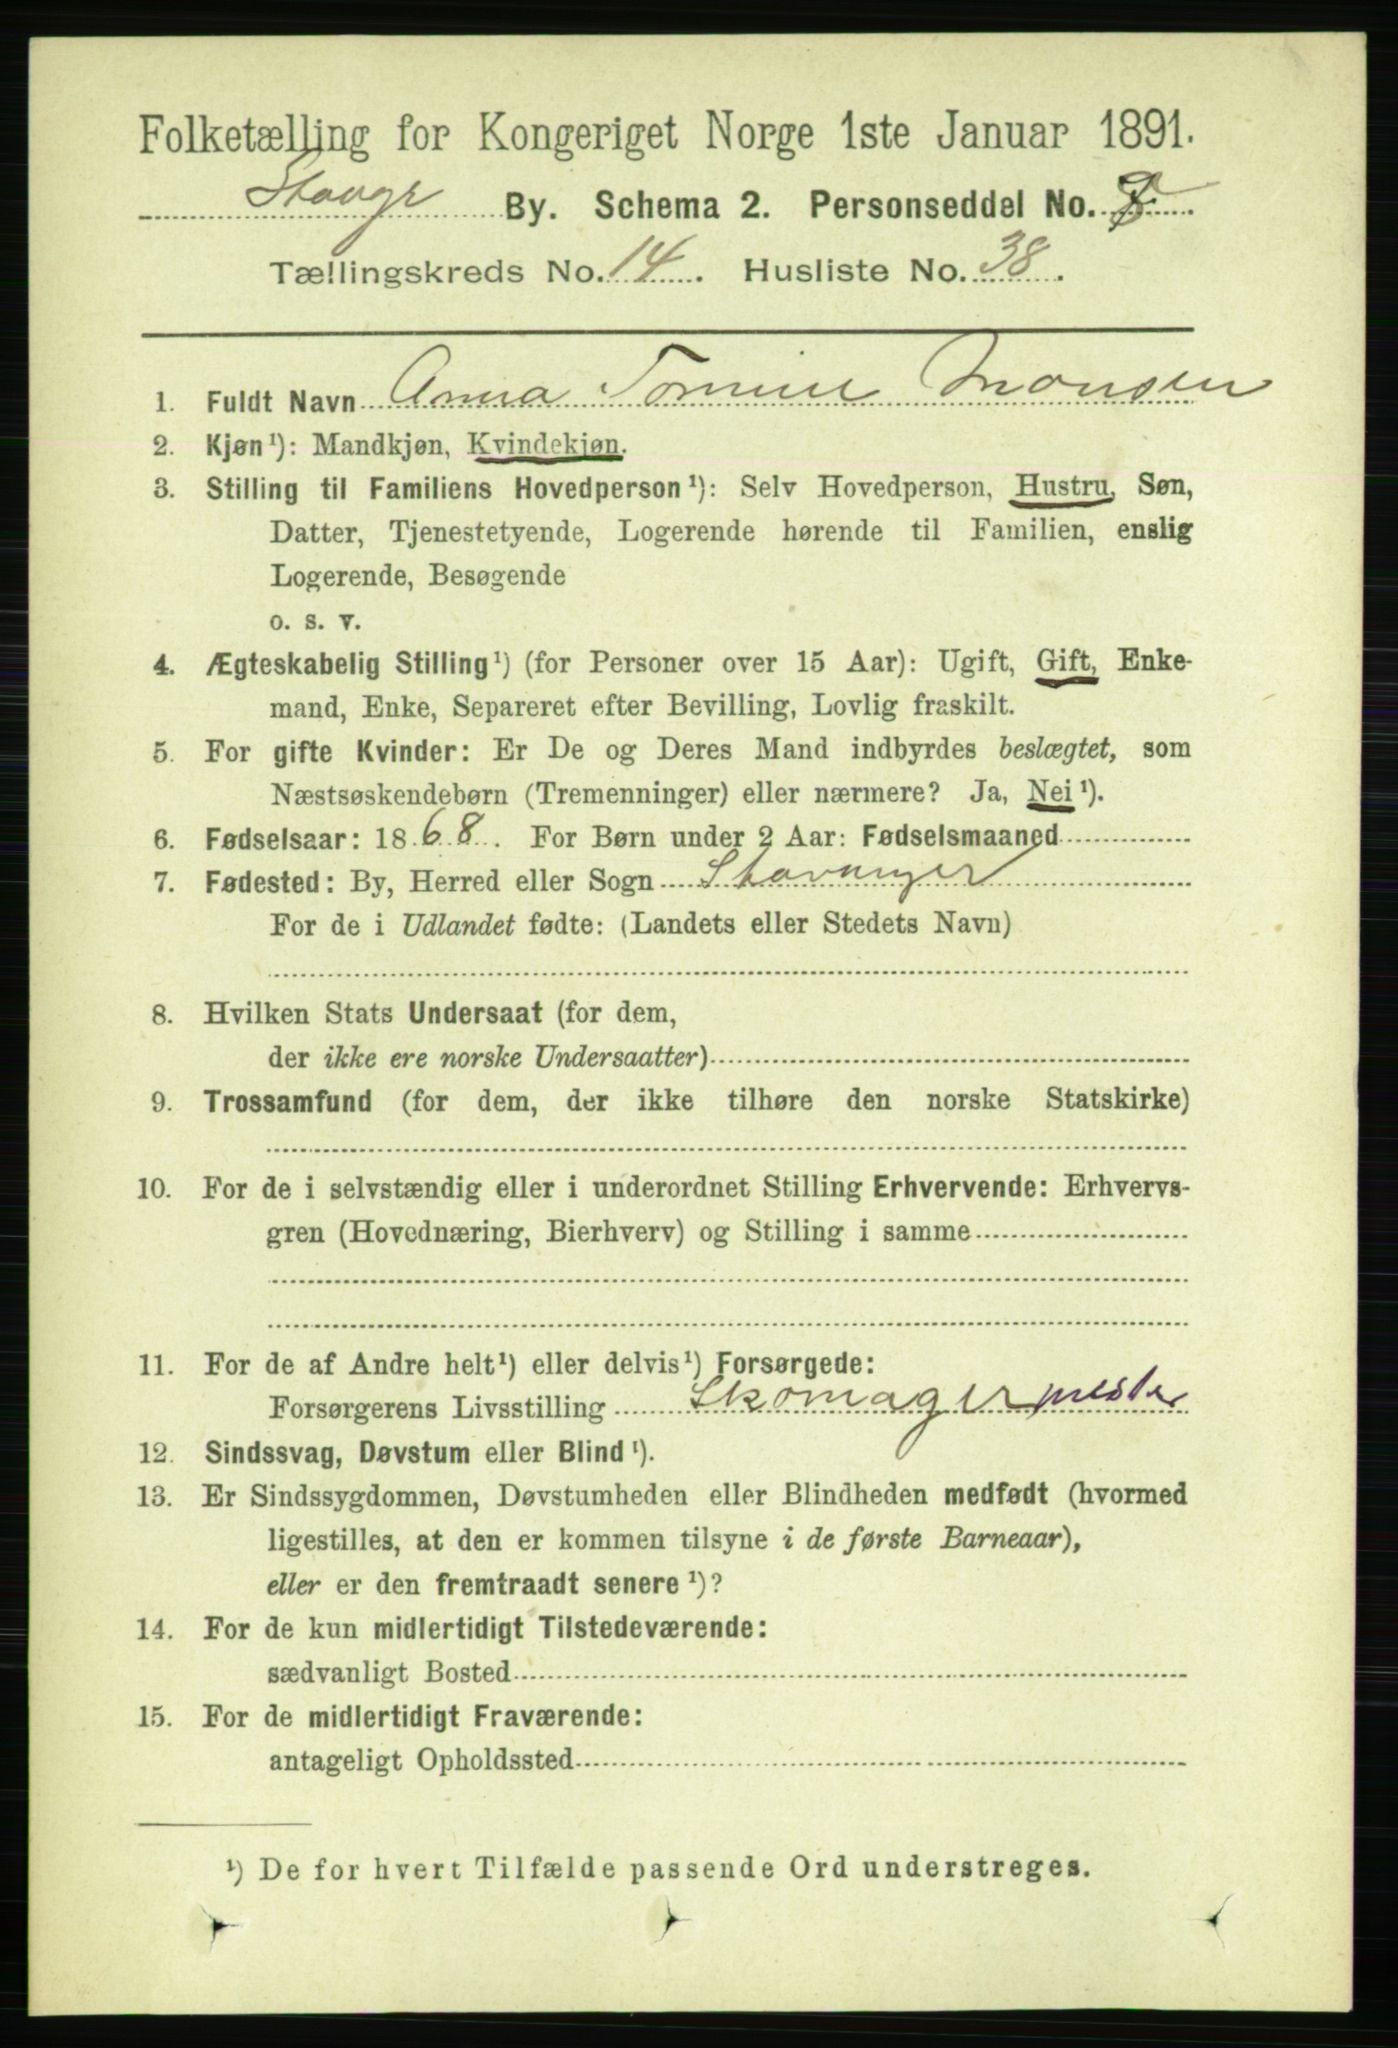 Folketælling for Kongeriget Norge 1ste Januar 1891.
Stavgr By. Schema 2. Personseddel No.
Tællingskreds No. 14. Husliste No. 38.
1. Fuldt Navn Anna Tomine Monsen
2. Kjøn¹): Mandkjøn, Kvindekjøn.
3. Stilling til Familiens Hovedperson¹): Selv Hovedperson, Hustru, Søn,
Datter, Tjenestetyende, Logerende hørende til Familien, enslig
Logerende, Besøgende
o. s. v.
4. Ægteskabelig Stilling¹) (for Personer over 15 Aar): Ugift, Gift, Enke-
mand, Enke, Separeret efter Bevilling, Lovlig fraskilt.
5. For gifte Kvinder: Er De og Deres Mand indbyrdes beslægtet, som
Næstsøskendebørn (Tremenninger) eller nærmere? Ja, Nei¹).
6. Fødselsaar: 1868. For Børn under 2 Aar: Fødselsmaaned
7. Fødested: By, Herred eller Sogn Stavanger
For de i Udlandet fødte: (Landets eller Stedets Navn)
8. Hvilken Stats Undersaat (for dem,
der ikke ere norske Undersaatter)
9. Trossamfund (for dem, der ikke tilhøre den norske Statskirke)
10. For de i selvstændig eller i underordnet Stilling Erhvervende: Erhvervs-
gren (Hovednæring, Bierhverv) og Stilling i samme
11. For de af Andre helt¹) eller delvis¹) Forsørgede:
Forsørgerens Livsstilling Skomagermester
12. Sindssvag, Døvstum eller Blind¹).
13. Er Sindssygdommen, Døvstumheden eller Blindheden medfødt (hvormed
ligestilles, at den er kommen tilsyne i de første Barneaar),
eller er den fremtraadt senere¹)?
14. For de kun midlertidigt Tilstedeværende:
sædvanligt Bosted
15. For de midlertidigt Fraværende:
antageligt Opholdssted
¹) De for hvert Tilfælde passende Ord understreges.